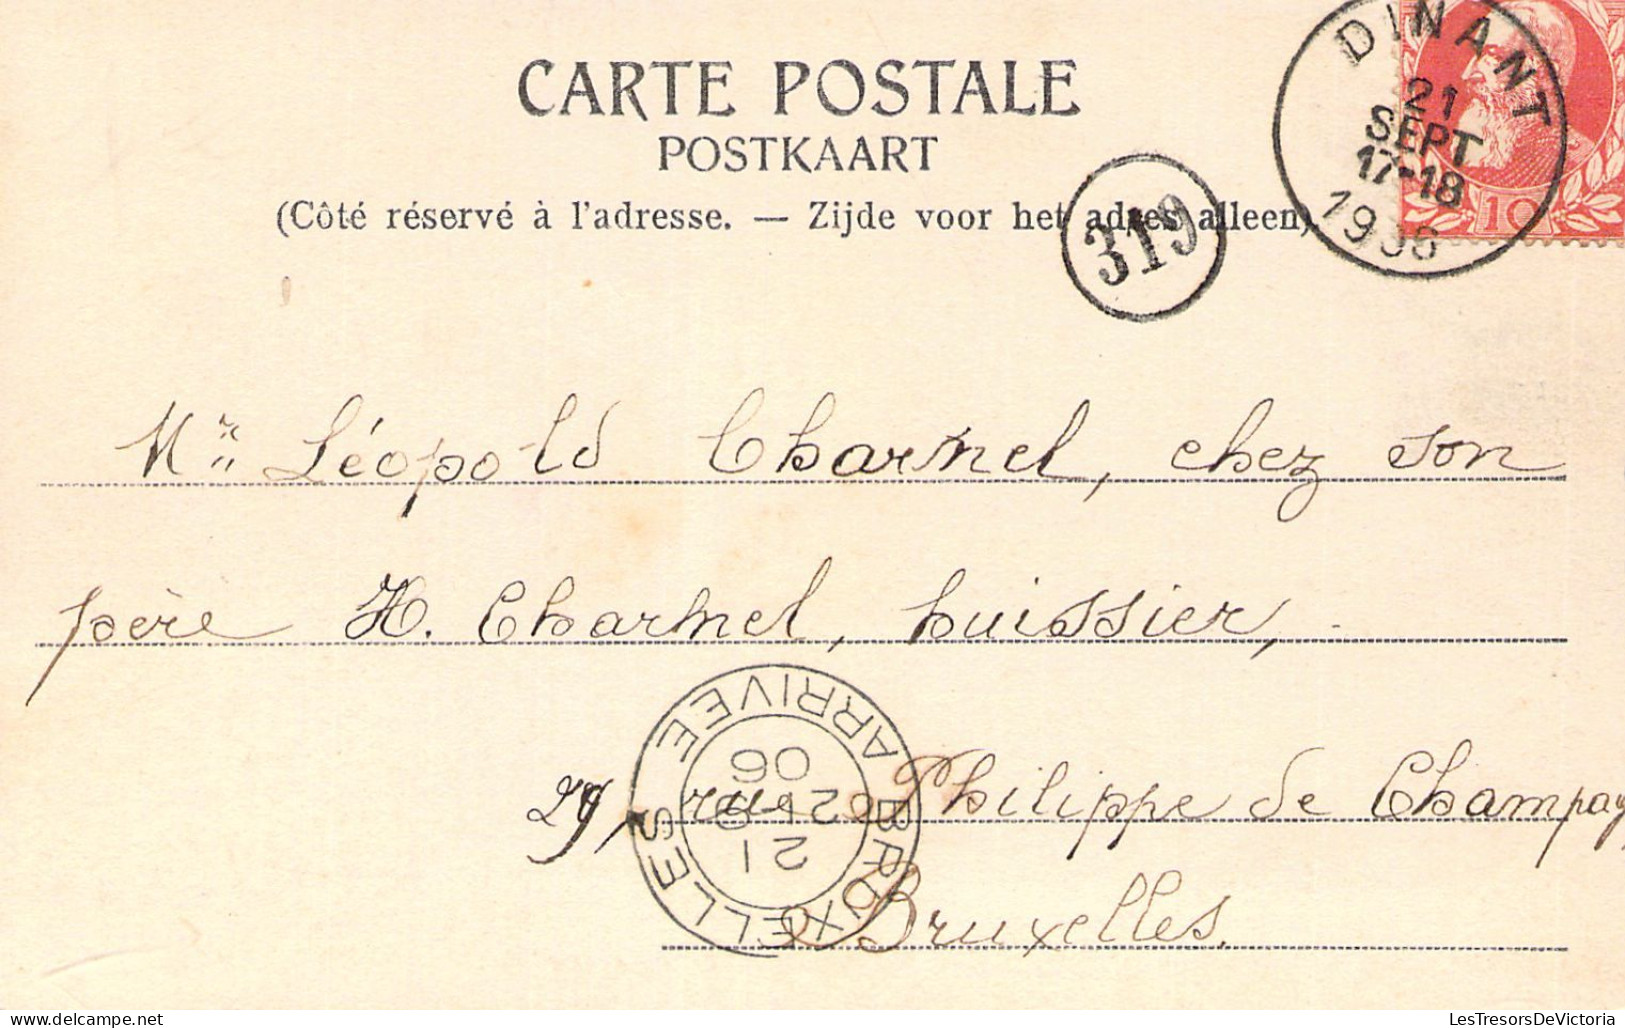 CARTE POSTALE
POSTKAART
(Côté réservé à l'adresse. — Zijde voor het adres alleen)
319
DINANT
21
SEPT
17-18
1906
10
Mr Léopold Charnel, chez son
père H. Charnel, huissier,
29, rue Philippe de Champag
Bruxelles.
BRUXELLES ARRIVÉE
21
06
LesTresorsDeVictoria